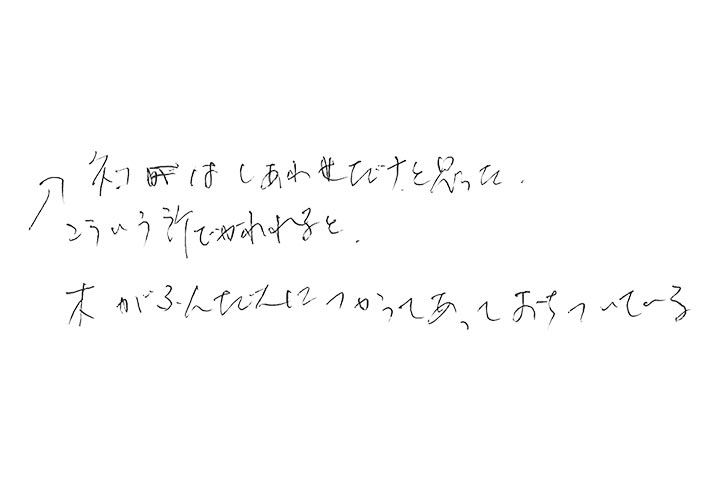 ネコ はしあわせだナと思った.
こういう所でかわれると.
木がふんだんにつかってあっておちついている